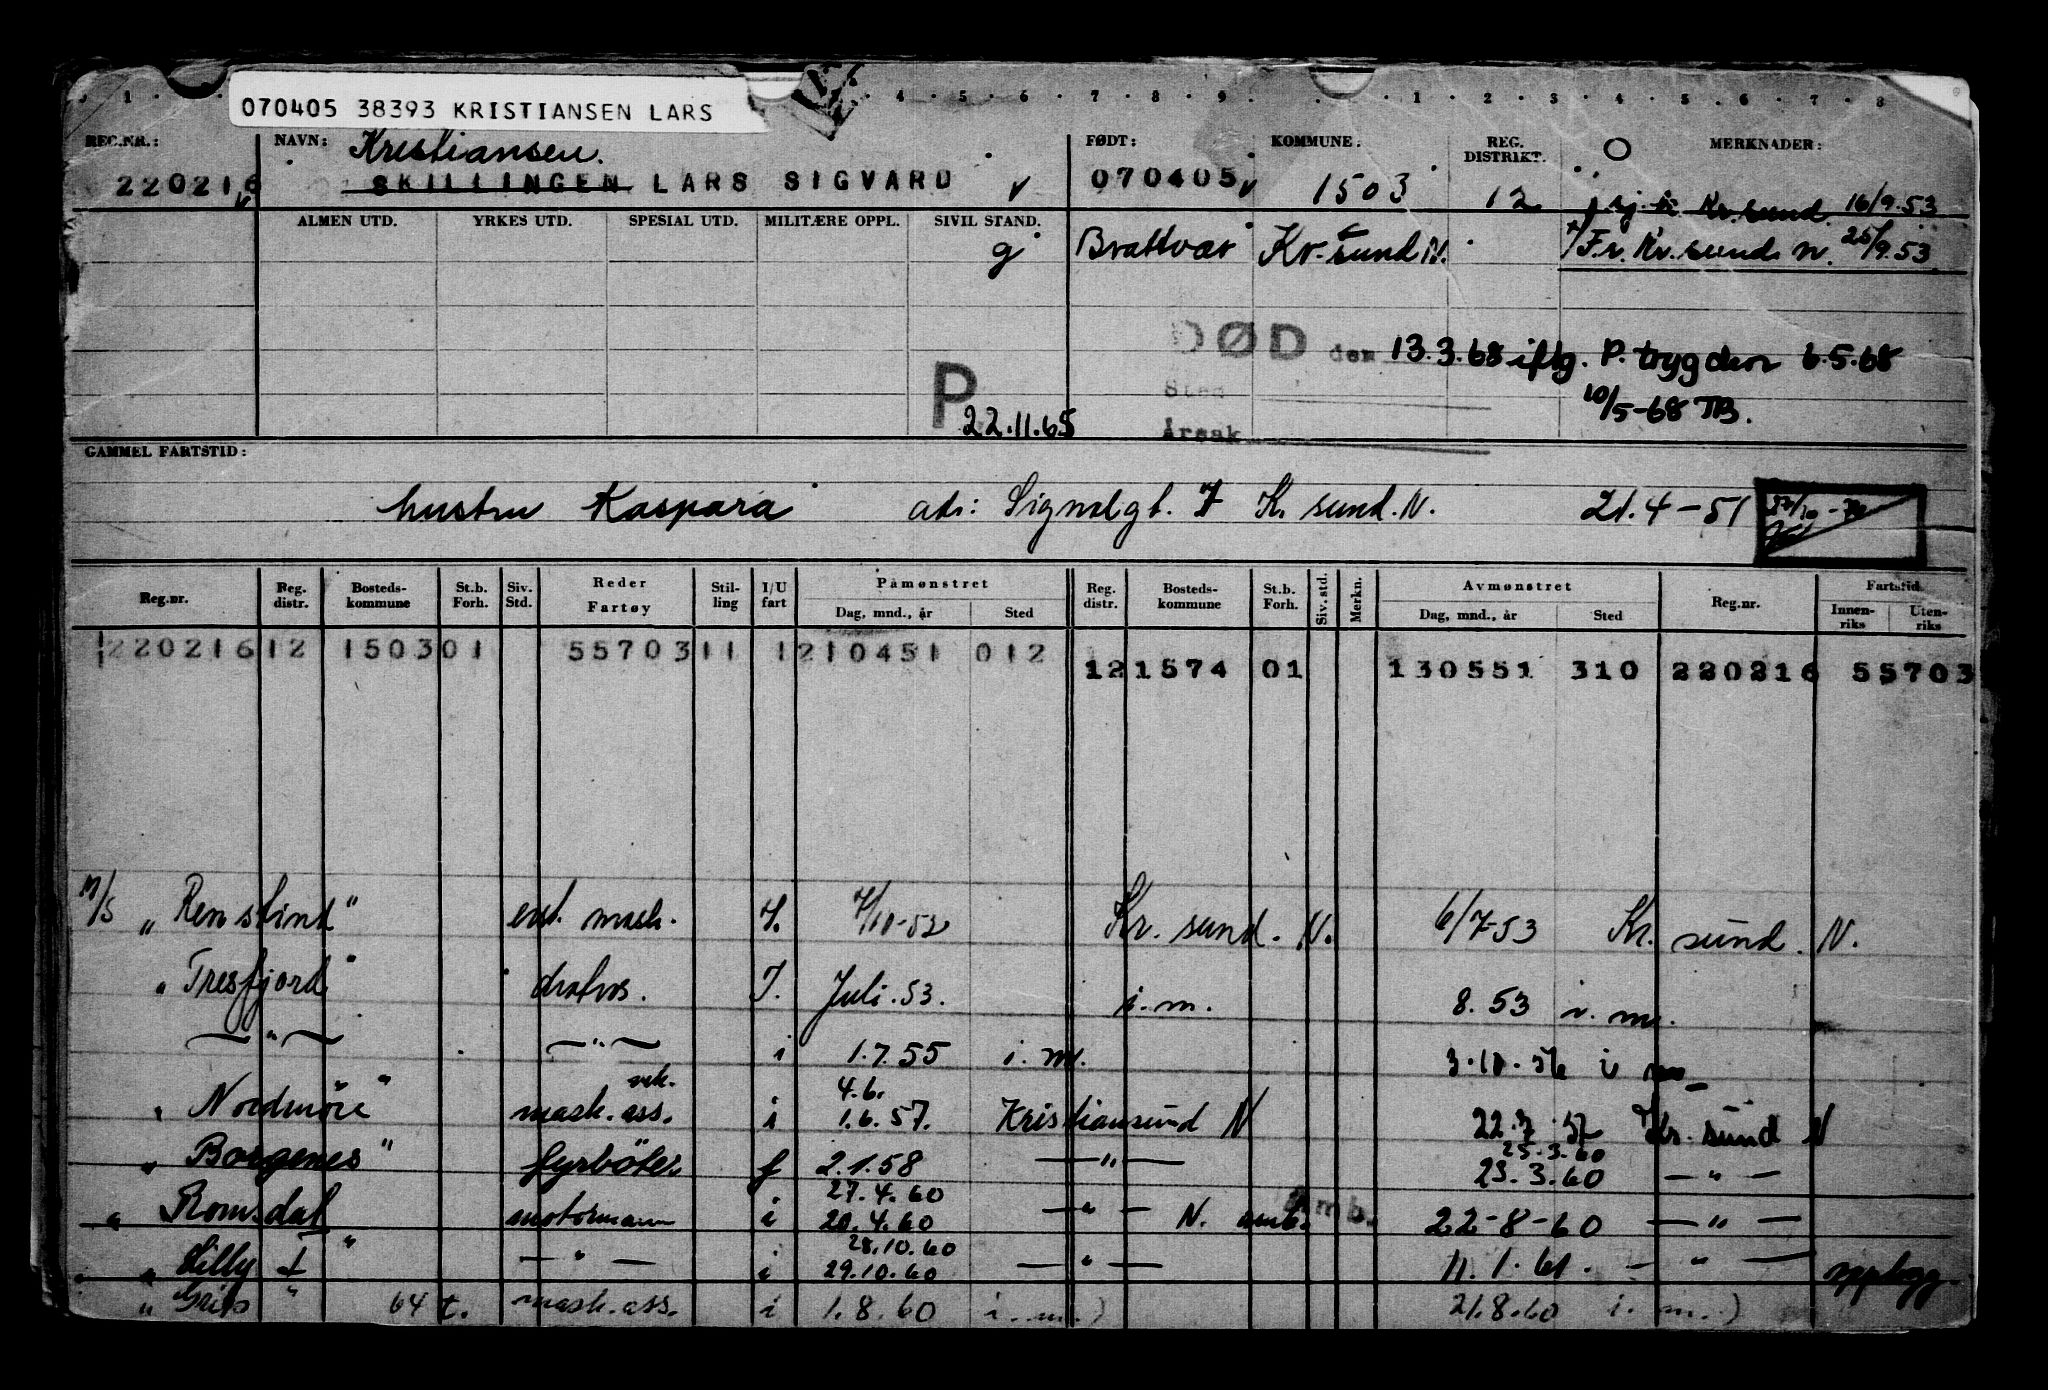 070405 38393 KRISTIANSEN LARS
1 4 5 6 7 8 9 1 2 3 4 5 6 7 8
REG.NR.: NAVN: FØDT: KOMMUNE: REG. DISTRIKT. MERKNADER:
Kristiansen.
220216 SKILLINGEN LARS SIGVARD v 070405 v 1503 12 Kr. sund. 16/9.53
ALMEN UTD. YRKES UTD. SPESIAL UTD. MILITÆRE OPPL. SIVIL STAND.
g Brattvær Kr. sund N. Fr. Kr. sund N. 25/9.53
DØD den 13.3.68 iflg. P. trygden 6.5.68
Sted
P 22.11.65 10/5-68 TB.
Årsak
GAMMEL FARTSTID:
hustru Kaspara adr: Signalgt. 7 Kr. sund. N. 21.4-51
Reg.nr. Reg. distr. Bosteds-kommune St.b. Forh. Siv. Std. Reder Fartøy Stil-ling I/U fart Påmønstret Reg. distr. Bosteds-kommune St.b. Forh. Siv. std. Merkn. Avmønstret Reg.nr. Fartstid
Dag, mnd., år Sted Dag, mnd., år Sted Innen-riks Uten-riks
220216 12 1503 01 55703 11 1 210451 012
12 1574 01 130551 310 220216 55703
M/S "Remstind" mask. I. 7/10-52 Kr. sund. N. 6/7-53 Kr. sund. N.
" Tresfjord" I. Juli. 53. i. m. 8. 53 i. m.
— " — — " — i 1.7.55 i. m. 3.10.56 i m
vik. 4.6.
" Nordmøre" mask. ass. i 1.6.57. Kristiansund N 22.7.57 Kr. sund N
25.3.60
" Borgenes" fyrbøter f 2.1.58 — " — 23.3.60 — " —
27.4.60
" Romsdal" motormann i 20.4.60 — " — N. amb. Amb. 22-8-60 — " —
28.10.60
" Lilly" — " — i 29.10.60 — " — 11.1.61. — " — opplagg.
" Grip" 64 t. mask. ass. i 1.8.60 i. m.) 21.8.60 i. m.)